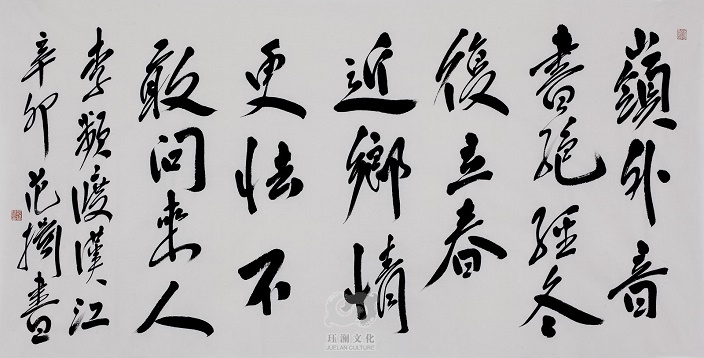 嶺外音
書絕經冬
復立春
近鄉情
更怯不
敢問來人
李頻渡漢江
辛卯范書
珏澜文化
JUELAN CULTURE